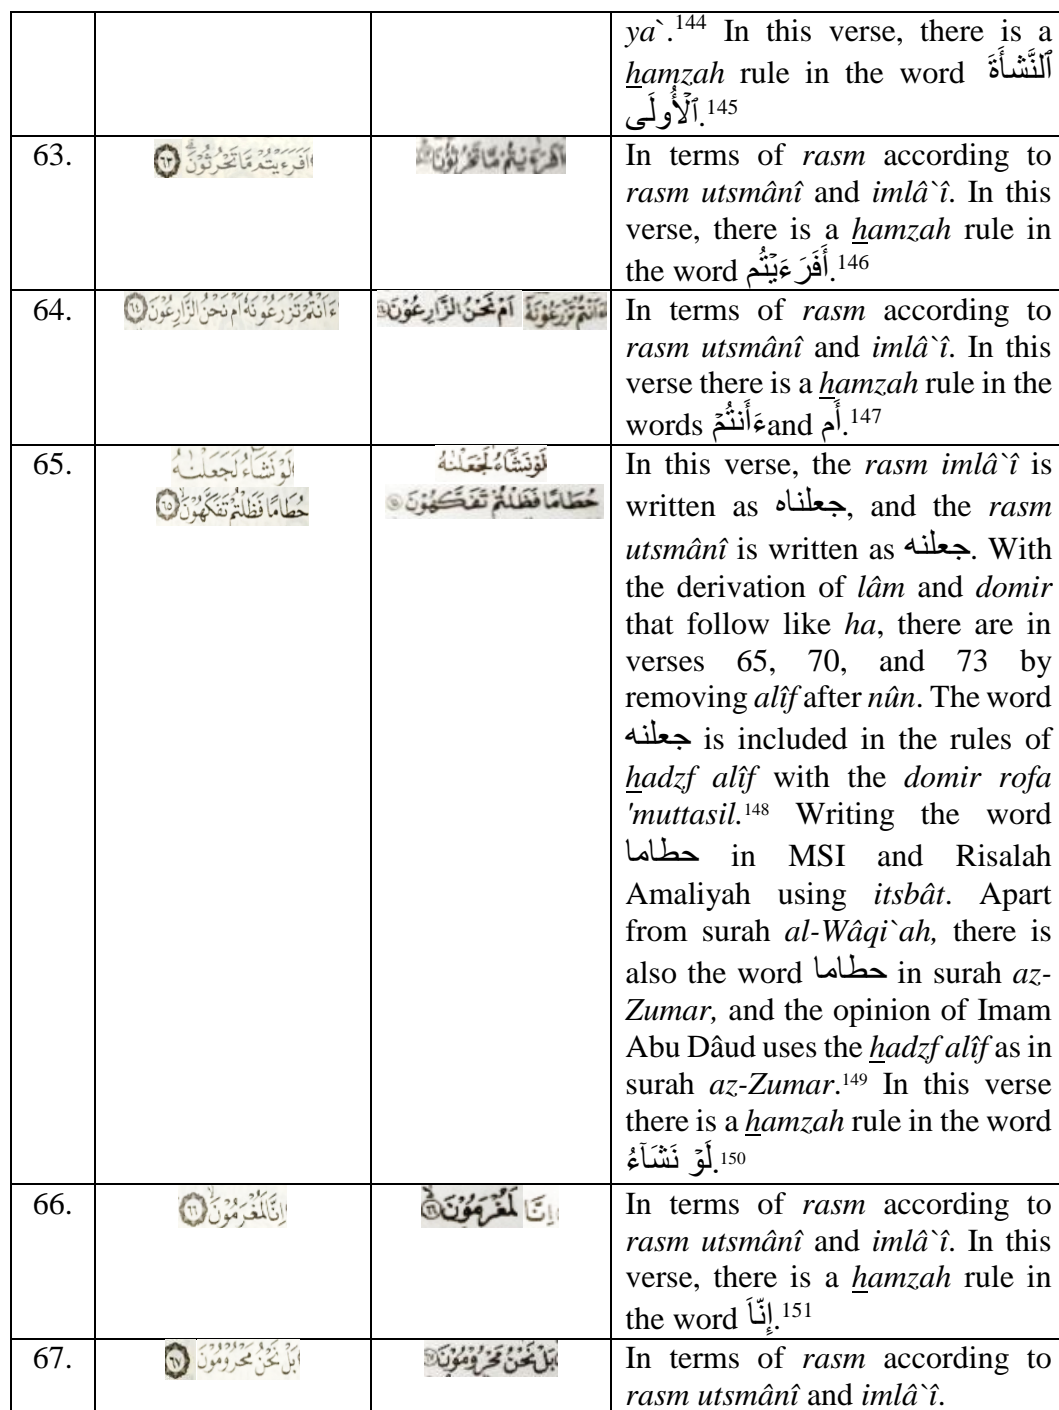 ya`.144 In this verse, there is a
hamzah rule in the word ٱلنَّشأَةَ
ٱلۡأُولَى.145
63.
اَفَرَءَيْتُمْ مَّا تَحْرُثُوْنَۗ ٦٣
اَفَرَءَيْتُمْ مَّا تَحْرُثُوْنَ
In terms of rasm according to
rasm utsmânî and imlâ`î. In this
verse, there is a hamzah rule in
the word أَفَرَءَيۡتُم.146
64.
ءَاَنْتُمْ تَزْرَعُوْنَهٗٓ اَمْ نَحْنُ الزَّارِعُوْنَ ٦٤
ءَاَنْتُمْ تَزْرَعُوْنَهٗ اَمْ نَحْنُ الزَّارِعُوْنَ
In terms of rasm according to
rasm utsmânî and imlâ`î. In this
verse there is a hamzah rule in the
words ءَأَنتُمۡ and أَم.147
65.
لَوْ نَشَاۤءُ لَجَعَلْنٰهُ
حُطَامًا فَظَلْتُمْ تَفَكَّهُوْنَۙ ٦٥
لَوْ نَشَاۤءُ لَجَعَلْنٰهُ
حُطَامًا فَظَلْتُمْ تَفَكَّهُوْنَ
In this verse, the rasm imlâ`î is
written as جعلناه, and the rasm
utsmânî is written as جعلنه. With
the derivation of lâm and domir
that follow like ha, there are in
verses 65, 70, and 73 by
removing alîf after nûn. The word
جعلنه is included in the rules of
hadzf alîf with the domir rofa
'muttasil.148 Writing the word
حطاما in MSI and Risalah
Amaliyah using itsbât. Apart
from surah al-Wâqi`ah, there is
also the word حطاما in surah az-
Zumar, and the opinion of Imam
Abu Dâud uses the hadzf alîf as in
surah az-Zumar.149 In this verse
there is a hamzah rule in the word
لَوۡ نَشَآءُ.150
66.
اِنَّا لَمُغْرَمُوْنَۙ ٦٦
اِنَّا لَمُغْرَمُوْنَۙ ٦٦
In terms of rasm according to
rasm utsmânî and imlâ`î. In this
verse, there is a hamzah rule in
the word إِنَّاَ.151
67.
بَلْ نَحْنُ مَحْرُوْمُوْنَ ٦٧
بَلْ نَحْنُ مَحْرُوْمُوْنَ
In terms of rasm according to
rasm utsmânî and imlâ`î.